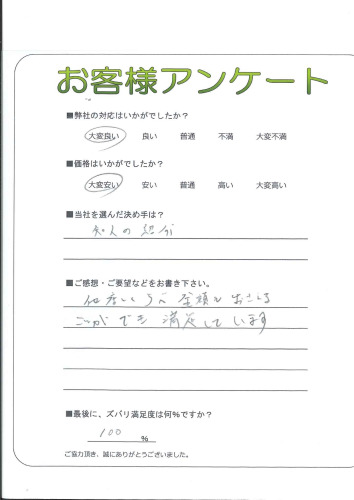 お客様アンケート
■弊社の対応はいかがでしたか？
大変良い 良い 普通 不満 大変不満
■価格はいかがでしたか？
大変安い 安い 普通 高い 大変高い
■当社を選んだ決め手は？
知人の紹介
■ご感想・ご要望などをお書き下さい。
金額も おさえる
ことができ 満足しています
■最後に、ズバリ満足度は何%ですか？
100 %
ご協力頂き、誠にありがとうございました。